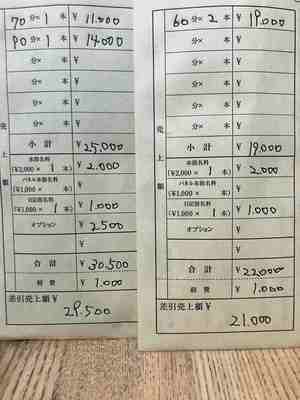 70分×1本 ¥11.000
90分×1本 ¥14.000
分× 本 ¥
分× 本 ¥
分× 本 ¥
分× 本 ¥
売上額
小計 ¥25,000
本指名料
(¥2,000×1本) ¥2.000
パネル本指名料
(¥1,000× 本) ¥
日記指名料
(¥1,000×1本) ¥1.000
オプション ¥2500
¥
合計 ¥30.500
経費 ¥1.000
差引売上額¥
29.500
60分×2本 ¥19.000
分× 本 ¥
分× 本 ¥
分× 本 ¥
分× 本 ¥
分× 本 ¥
売上額
小計 ¥19,000
本指名料
(¥2,000×1本) ¥2,000
パネル本指名料
(¥1,000× 本) ¥
日記指名料
(¥1,000×1本) ¥1.000
オプション ¥
¥
合計 ¥22000
経費 ¥1.000
差引売上額¥
21.000